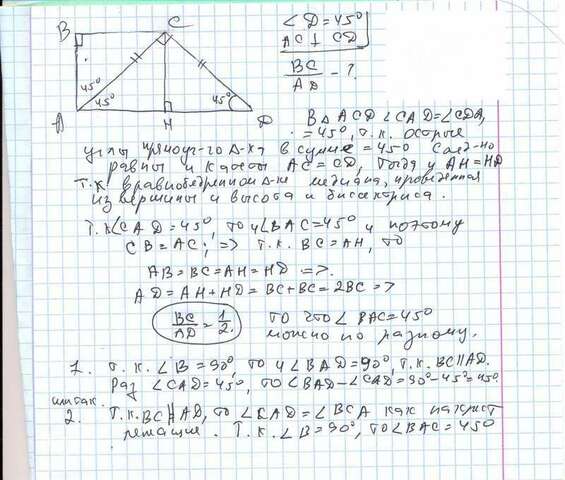 B C
∠D = 45°
AC ⊥ CD
BC/AD - ?
45°
45° 45°
A H D
В Δ ACD ∠CAD = ∠CDA,
= 45°, т.к. острые
углы прямоуг-го Δ-ка, в сумме = 450 След-но
равны и катеты AC = CD, тогда и AH = HD
т.к в равнобедренном Δ-ке медиана, проведенная
из вершины и высота и биссектриса.
Т.к ∠CAD = 45°, то и ∠BAC = 45° и поэтому
CB = AC, => т.к. BC = AH, то
AB = BC = AH = HD =>.
AD = AH + HD = BC + BC = 2BC =>
BC/AD = 1/2. то что ∠ BAC = 45°
можно по разному.
1. т.к. ∠B = 90°, то и ∠BAD = 90°, т.к. BC || AD.
Раз ∠CAD = 45°, то ∠BAD - ∠CAD = 90° - 45° = 45°.
или так
2. Т.к. BC || AD, то ∠CAD = ∠BCA как накрест
лежащие. Т.к. ∠B = 90°, то ∠BAC = 450